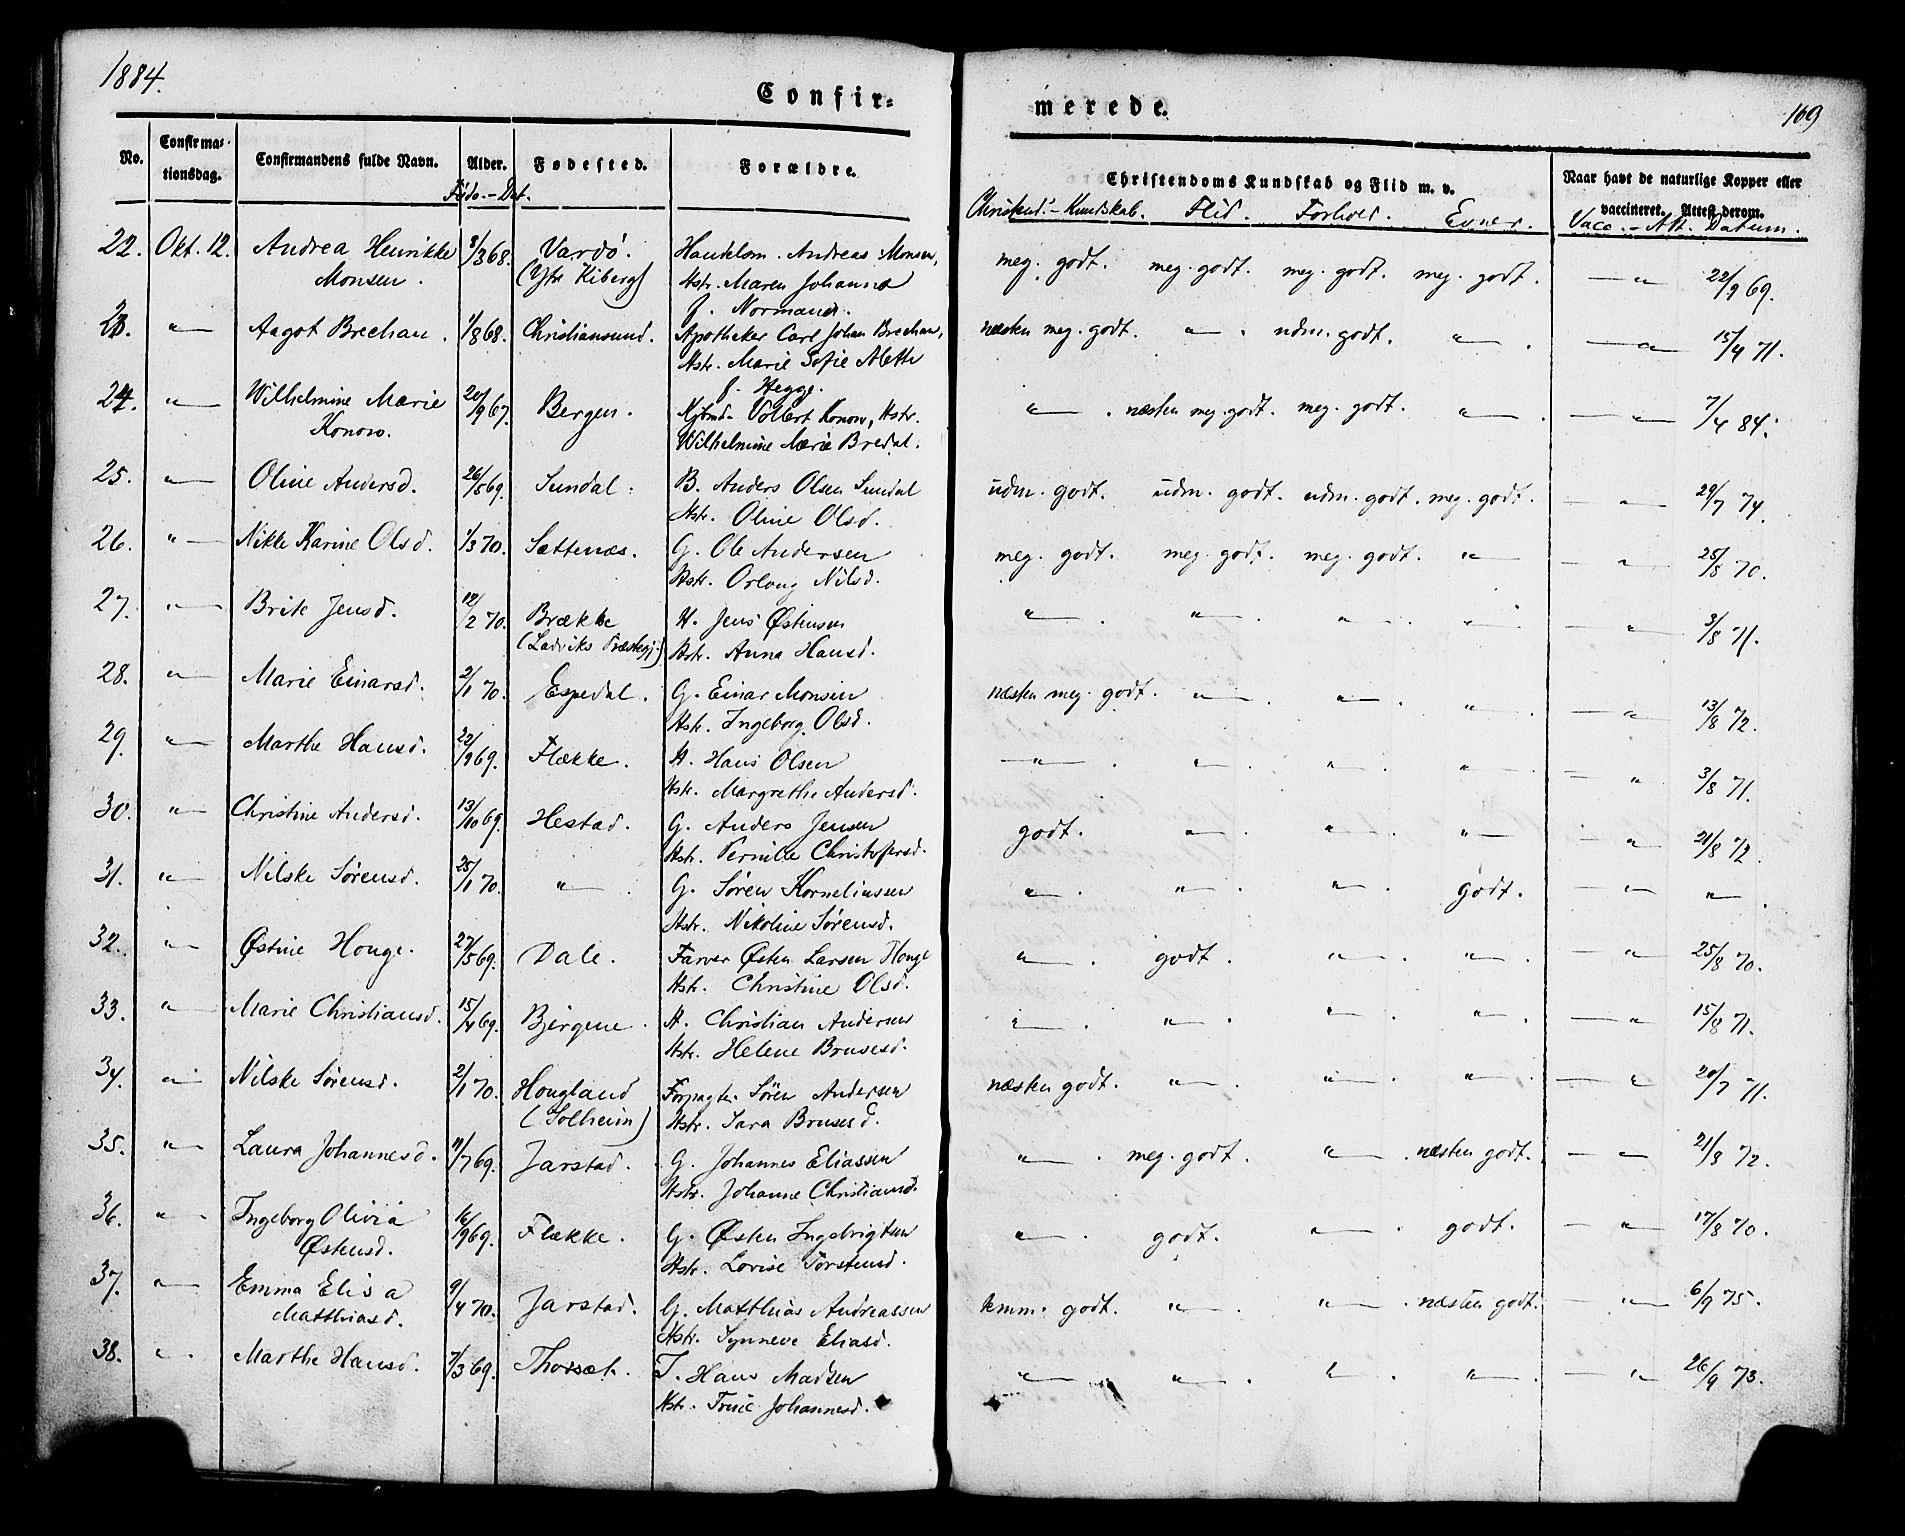 1884.
Confirmerede.
169
No. Confirmationsdag. Confirmandens fulde Navn. Alder. Fødested. Forældre. Christendoms Kundskab og Flid m. v. Naar havt de naturlige Kopper eller vaccineret. Attest derom.
Føds.-Dat. Christend.-Kundskab. Flid. Forhold. Evner. Vacc.-Att. Datum.
22. Okt. 12. Andrea Henrikke 3/3 68. Vardø. Handelsm. Andreas Monsen, meg. godt. meg. godt. meg. godt. meg. godt. — " 22/9 69.
Monsen. (Ytre Kiberg) Hstr. Maren Johanna
f. Normann.
23. " Aagot Brechan. 1/8 68. Christiansund. Apotheker Carl Johan Brechan, næsten meg. godt. " udm. godt. " — " 15/4 71.
Hstr. Marie Sofie Alette
f. Hegge.
24. " Wilhelmine Marie 20/9 67. Bergen. Kjbmd. Vollert Konow, Hstr. " næsten meg. godt. meg. godt. " — " 7/4 84.
Konow. Wilhelmine Marie Bredal.
25. " Oline Andersd. 26/5 69. Sundal. B. Anders Olsen Sundal udm. godt. udm. godt. udm. godt. meg. godt. — " 29/7 74.
Hstr. Oline Olsd.
26. " Nikke Karine Olsd. 1/3 70. Sættenæs. G. Ole Andersen meg. godt. meg. godt. meg. godt. " — " 25/8 70.
Hstr. Orlaug Nilsd.
27. " Brite Jensd. 12/2 70. Brække H. Jens Østensen " " " " — " 3/8 71.
(Ladviks Præstegj.) Hstr. Anna Hansd.
28. " Marie Einarsd. 2/1 70. Espedal. G. Einar Monsen næsten meg. godt. " " " — " 13/8 72.
Hstr. Ingeborg Olsd.
29. " Marthe Hansd. 22/9 69. Flække. H. Hans Olsen " " " " — " 3/8 71.
Hstr. Margrethe Andersd.
30. " Christine Andersd. 13/10 69. Hestad. G. Anders Jensen godt. " " " — " 21/8 72.
Hstr. Pernille Christofersd.
31. " Nilske Sørensd. 25/1 70. " G. Søren Korneliussen " " " godt. — " "
Hstr. Nikoline Sørensd.
32. " Østine Houge. 27/5 69. Dale. Farver Østen Larsen Houge " godt. " " — " 25/8 70.
Hstr. Christine Olsd.
33. " Marie Christiansd. 15/4 69. Bjergene. H. Christian Andersen " " " " — " 15/8 71.
Hstr. Helene Brusesd.
34. " Nilske Sørensd. 2/1 70. Hougland Forpagter Sören Andersen næsten godt. " " " — " 20/7 71.
(Solheim) Hstr. Sara Brusesd.
35. " Laura Johannesd. 11/7 69. Jarstad. G. Johannes Eliassen " meg. godt. " næsten godt. — " 21/8 72.
Hstr. Johanne Christiansd.
36. " Ingeborg Olivia 16/9 69. Flække. G. Østen Ingebrigtsen " godt. " godt. — " 17/8 70.
Østensd. Hstr. Lovise Torstensd.
37. " Emma Elisa 9/4 70. Jarstad. G. Matthias Andreassen temm. godt. " " næsten godt. — " 6/9 75.
Matthiasd. Hstr. Synneve Eliasd.
38. " Marthe Hansd. 7/3 69. Thorsæt. I. Hans Madsen " " " " — " 26/9 73.
Hstr. Trine Johannesd.